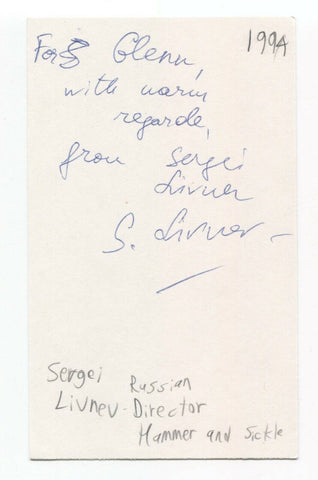 1994
For Glenn,
with warm
regards,
from Sergei
Livnev
S. Livnev
Sergei Russian
Livnev - Director
Hammer and Sickle